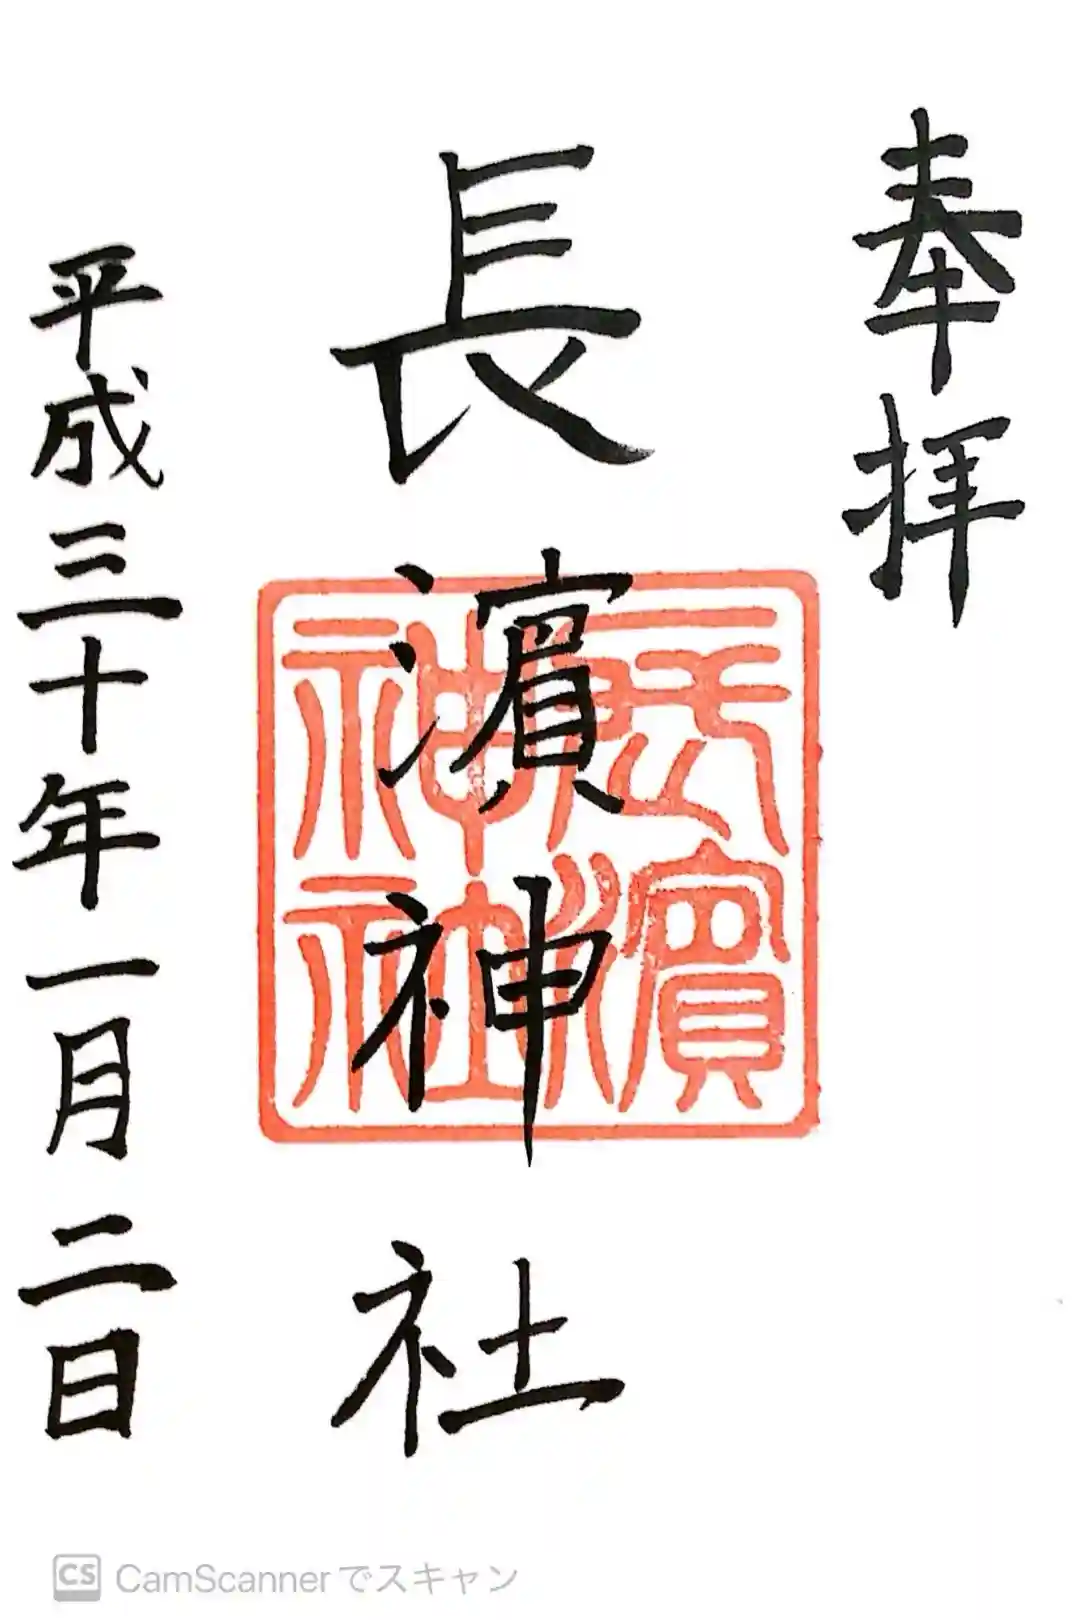 奉拝
長濱神社
長濱
神社
平成三十年一月二日
CS CamScannerでスキャン